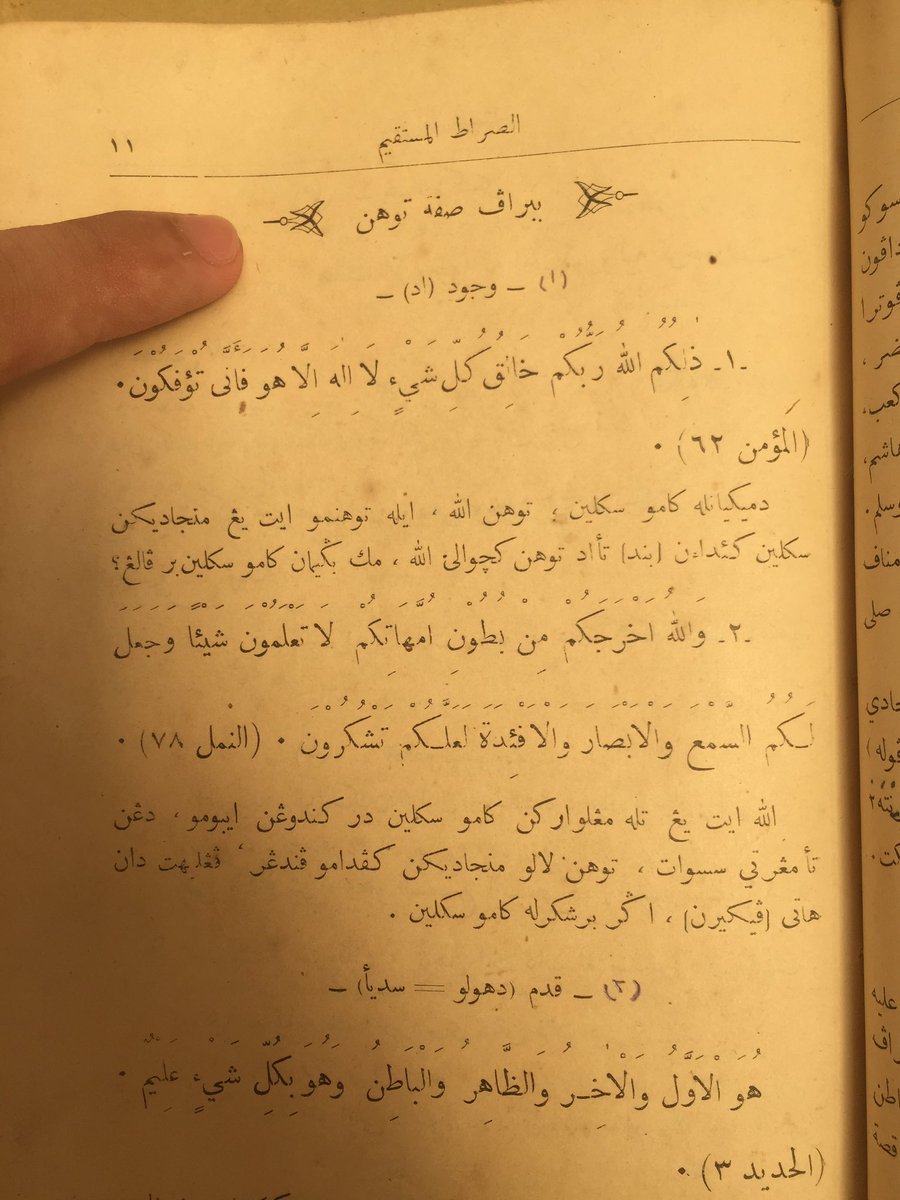 الصراط المستقيم ١١
ببراڤ صفة توهن
(١) ـ وجود (اد) ـ
ـ١ـ ذٰلِكُمُ اللهُ رَبُّكُمْ خَالِقُ كُلِّ شَيْءٍ لَا اِلٰهَ اِلَّا هُوَ فَاَنَّى تُؤْفَكُوْنَ ٠
(المؤمن ٦٢) ٠
دميكيانله كامو سكلين ، توهن الله ، ايله توهنمو ايت يڠ منجاديكن
سكلين كئداءن (بند) تأاد توهن كچوالئ الله ، مك بڬيمان كامو سكلين بر ڤالڠ؟
ـ٢ـ وَاللهُ اَخْرَجَكُمْ مِنْ بُطُوْنِ اُمَّهَاتِكُمْ لَا تَعْلَمُوْنَ شَيْئًا وَجَعَلَ
لَكُمُ السَّمْعَ وَالْاَبْصَارَ وَالْاَفْئِدَةَ لَعَلَّكُمْ تَشْكُرُوْنَ ٠ (النمل ٧٨) ٠
الله ايت يڠ تله مڠلواركن كامو سكلين در كندوڠن ايبومو ، دڠن
تأ مڠرتي سسوات ، توهن لالو منجاديكن كڤدامو ڤندڠر ، ڤڠليهت دان
هاتى (ڤيكيرن) ، اڬر برشكرله كامو سكلين ٠
(٢) ـ قدم (دهولو = سديأ) ـ
هُوَ الْاَوَّلُ وَالْاٰخِرُ وَالظَّاهِرُ وَالْبَاطِنُ وَهُوَ بِكُلِّ شَيْءٍ عَلِيْمٌ ٠
(الحديد ٣) ٠